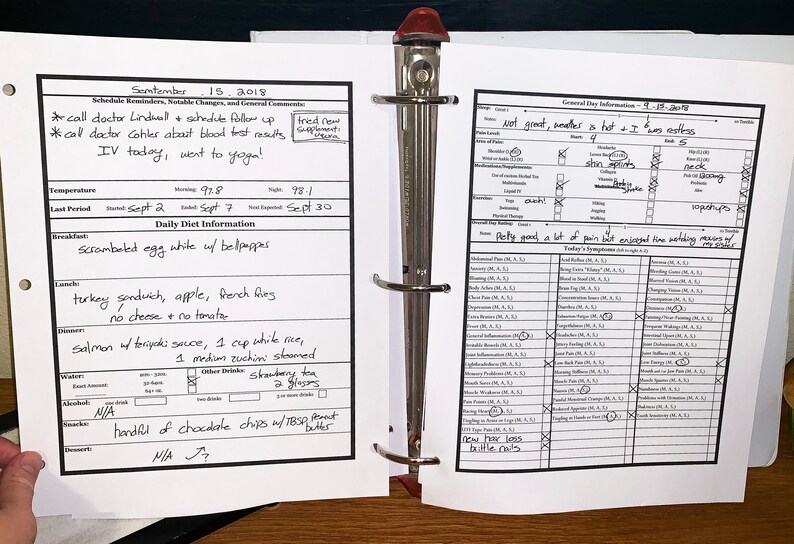 Semtember . 15 . 2018
Schedule Reminders, Notable Changes, and General Comments:
* call doctor Lindwall & schedule follow up
* call doctor Cohler about blood test results
IV today, went to yoga!
tried new
supplement:
Temperature Morning: 97.8 Night: 98.1
Last Period Started: Sept 2 Ended: Sept 7 Next Expected: Sept 30
Daily Diet Information
Breakfast:
scrambeled egg white w/ bellpepper
Lunch:
turkey sandwich, apple, french fries
no cheese & no tomatoe
Dinner:
salmon w/ teriyaki sauce, 1 cup white rice,
1 medium zuchinni steamed
Water: zero - 32oz. Other Drinks: strawberry tea
Exact Amount: 32-64oz. 2 glasses
64+ oz.
Alcohol: one drink two drinks 3 or more drinks
N/A
Snacks: handful of chocolate chips w/ TBSP peanut
butter
Dessert:
N/A ?
General Day Information ~ 9.15.2018
Sleep: Great 1 6 10 Terrible
Notes: Not great, weather is hot + I was restless
Pain Level: Start: 4 End: 5
Area of Pain: Headache
Shoulder (L) (R) Lower Back (L) (R) Hip (L) (R)
Wrist or Ankle (L) (R) shin splints Knee (L) (R)
neck
Medications/Supplements: Collagen Fish Oil 1200mg
Use of custom Herbal Tea Vitamin D Probiotic
Multivitamin Aloe
Liquid IV
Exercise: Yoga ouch! Hiking 10 pushups
Swimming Jogging
Physical Therapy Walking
Overall Day Rating: Great 1 4 10 Terrible
Notes: Pretty good, a lot of pain but enjoyed time watching movies w/
my sister
Today's Symptoms (left to right A-Z)
Abdominal Pain (M, A, S,) Acid Reflux (M, A, S,) Anemia (M, A, S,)
Anxiety (M, A, S,) Being Extra "Klutzy" (M, A, S,) Bleeding Gums (M, A, S,)
Bloating (M, A, S,) Blood in Stool (M, A, S,) Blurred Vision (M, A, S,)
Body Aches (M, A, S,) Brain Fog (M, A, S,) Changing Vision (M, A, S,)
Chest Pain (M, A, S,) Concentration Issues (M, A, S,) Constipation (M, A, S,)
Depression (M, A, S,) Diarrhea (M, A, S,) Dizziness (M, A, S,)
Extra Bruises (M, A, S,) Exhaustion/Fatigue (M, A, S,) Fainting/Near-Fainting (M, A, S,)
Fever (M, A, S,) Forgetfulness (M, A, S,) Frequent Wakings (M, A, S,)
General Inflammation (M, A, S,) Headaches (M, A, S,) Intestinal Upset (M, A, S,)
Irritable Bowels (M, A, S,) Jittery Feeling (M, A, S,) Joint Dislocation (M, A, S,)
Joint Inflammation (M, A, S,) Joint Pain (M, A, S,) Joint Stiffness (M, A, S,)
Lightheadedness (M, A, S,) Low Back Pain (M, A, S,) Low Energy (M, A, S,)
Memory Problems (M, A, S,) Morning Stiffness (M, A, S,) Mouth and/or Jaw Pain (M, A, S,)
Mouth Sores (M, A, S,) Muscle Pain (M, A, S,) Muscle Spasms (M, A, S,)
Muscle Weakness (M, A, S,) Nausea (M, A, S,) Numbness (M, A, S,)
Pain Points (M, A, S,) Painful Menstrual Cramps (M, A, S,) Problems with Urination (M, A, S,)
Racing Heart (M, A, S,) Reduced Appetite (M, A, S,) Shakiness (M, A, S,)
Tingling in Arms or Legs (M, A, S,) Tingling in Hands or Feet (M, A, S,) Tooth Sensitivity (M, A, S,)
UTI Type Pain (M, A, S,)
new hair loss
brittle nails